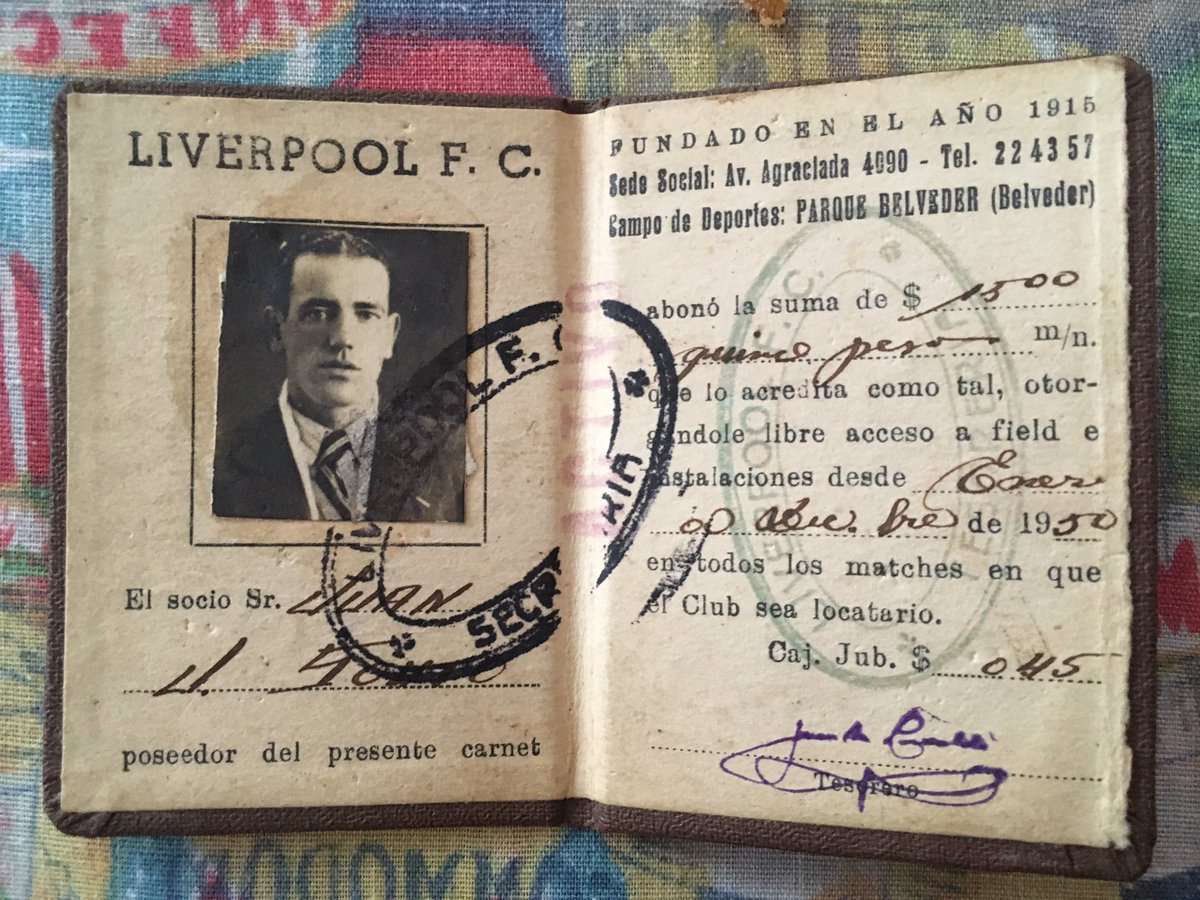 LIVERPOOL F. C.
El socio Sr. JUAN
J.
poseedor del presente carnet
SECR
RIA
ACTIVO
FUNDADO EN EL AÑO 1915
Sede Social: Av. Agraciada 4090 - Tel. 22 43 57
Campo de Deportes: PARQUE BELVEDER (Belveder)
abonó la suma de $ 1500
quince pesos m/n.
que lo acredita como tal, otor-
gándole libre acceso a field e
instalaciones desde Enero
de 1950
en todos los matches en que
el Club sea locatario.
Caj. Jub. $ 045
Tesorero